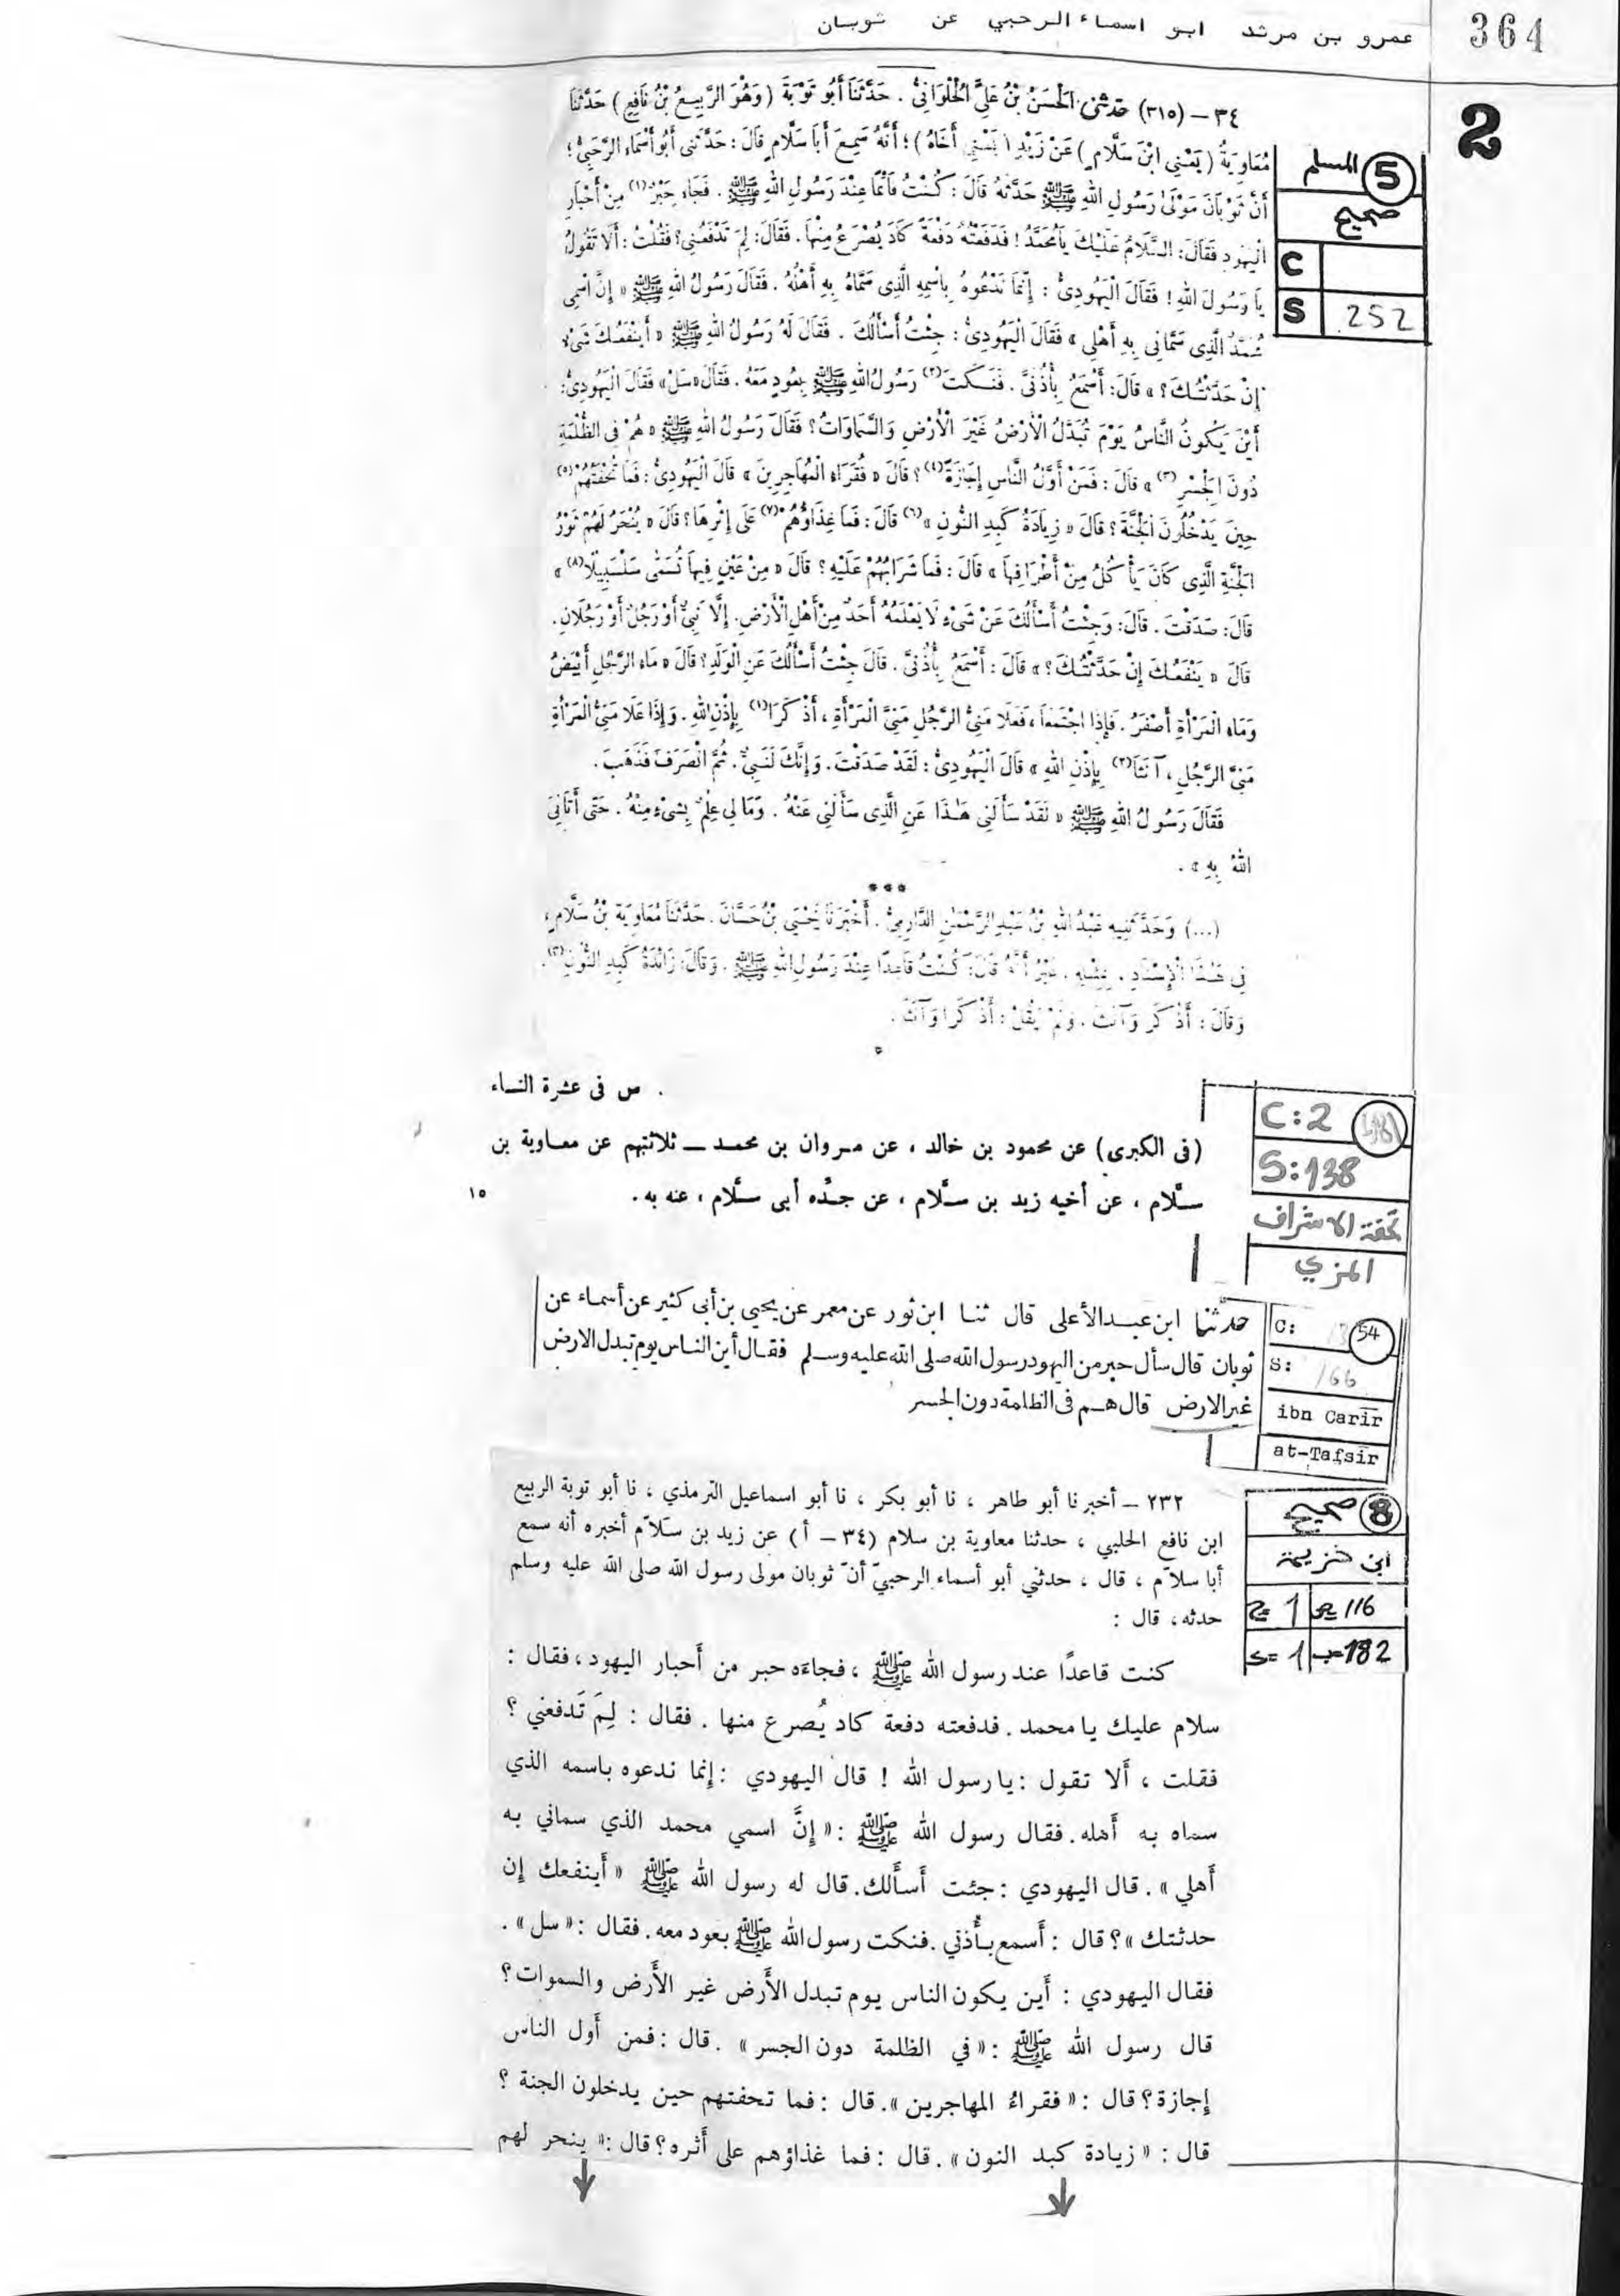 364
عمرو بن مرثد ابو اسماء الرحبي عن ثوبان
2
٣٤ – (٣١٥) حَدَّثَنِي الْحَسَنُ بْنُ عَلِيٍّ الْحُلْوَانِيُّ . حَدَّثَنَا أَبُو تَوْبَةَ (وَهُوَ الرَّبِيعُ بْنُ نَافِعٍ) حَدَّثَنَا
مُعَاوِيَةُ (يَعْنِي ابْنَ سَلَّامٍ) عَنْ زَيْدٍ (يَعْنِي أَخَاهُ) ؛ أَنَّهُ سَمِعَ أَبَا سَلَّامٍ قَالَ : حَدَّثَنِي أَبُو أَسْمَاءَ الرَّحَبِيُّ ؛
أَنَّ ثَوْبَانَ مَوْلَى رَسُولِ اللهِ ﷺ حَدَّثَهُ قَالَ : كُنْتُ قَائِمًا عِنْدَ رَسُولِ اللهِ ﷺ . فَجَاءَ حِبْرٌ (١) مِنْ أَحْبَارِ
الْيَهُودِ فَقَالَ : السَّلَامُ عَلَيْكَ يَا مُحَمَّدُ ! فَدَفَعْتُهُ دَفْعَةً كَادَ يُصْرَعُ مِنْهَا . فَقَالَ : لِمَ تَدْفَعُنِي ؟ فَقُلْتُ : أَلَا تَقُولُ
يَا رَسُولَ اللهِ ! فَقَالَ الْيَهُودِيُّ : إِنَّمَا نَدْعُوهُ بِاسْمِهِ الَّذِي سَمَّاهُ بِهِ أَهْلُهُ . فَقَالَ رَسُولُ اللهِ ﷺ « إِنَّ اسْمِي
مُحَمَّدٌ الَّذِي سَمَّانِي بِهِ أَهْلِي » فَقَالَ الْيَهُودِيُّ : جِئْتُ أَسْأَلُكَ . فَقَالَ لَهُ رَسُولُ اللهِ ﷺ « أَيَنْفَعُكَ شَيْءٌ
إِنْ حَدَّثْتُكَ ؟ » قَالَ : أَسْمَعُ بِأُذُنَيَّ . فَنَكَتَ (٢) رَسُولُ اللهِ ﷺ بِعُودٍ مَعَهُ . فَقَالَ « سَلْ » فَقَالَ الْيَهُودِيُّ :
أَيْنَ يَكُونُ النَّاسُ يَوْمَ تُبَدَّلُ الْأَرْضُ غَيْرَ الْأَرْضِ وَالسَّمَاوَاتُ ؟ فَقَالَ رَسُولُ اللهِ ﷺ « هُمْ فِي الظُّلْمَةِ
دُونَ الْجِسْرِ (٣) » قَالَ : فَمَنْ أَوَّلُ النَّاسِ إِجَازَةً (٤) ؟ قَالَ « فُقَرَاءُ الْمُهَاجِرِينَ » قَالَ الْيَهُودِيُّ : فَمَا تُحْفَتُهُمْ (٥)
حِينَ يَدْخُلُونَ الْجَنَّةَ ؟ قَالَ « زِيَادَةُ كَبِدِ النُّونِ » (٦) قَالَ : فَمَا غِذَاؤُهُمْ (٧) عَلَى إِثْرِهَا ؟ قَالَ « يُنْحَرُ لَهُمْ ثَوْرُ
الْجَنَّةِ الَّذِي كَانَ يَأْكُلُ مِنْ أَطْرَافِهَا » قَالَ : فَمَا شَرَابُهُمْ عَلَيْهِ ؟ قَالَ « مِنْ عَيْنٍ فِيهَا تُسَمَّى سَلْسَبِيلًا (٨) »
قَالَ : صَدَقْتَ . قَالَ : وَجِئْتُ أَسْأَلُكَ عَنْ شَيْءٍ لَا يَعْلَمُهُ أَحَدٌ مِنْ أَهْلِ الْأَرْضِ . إِلَّا نَبِيٌّ أَوْ رَجُلٌ أَوْ رَجُلَانِ .
قَالَ « يَنْفَعُكَ إِنْ حَدَّثْتُكَ ؟ » قَالَ : أَسْمَعُ بِأُذُنَيَّ . قَالَ جِئْتُ أَسْأَلُكَ عَنِ الْوَلَدِ ؟ قَالَ « مَاءُ الرَّجُلِ أَبْيَضُ
وَمَاءُ الْمَرْأَةِ أَصْفَرُ . فَإِذَا اجْتَمَعَا ، فَعَلَا مَنِيُّ الرَّجُلِ مَنِيَّ الْمَرْأَةِ ، أَذْكَرَا (١) بِإِذْنِ اللهِ . وَإِذَا عَلَا مَنِيُّ الْمَرْأَةِ
مَنِيَّ الرَّجُلِ ، آنَثَا (٢) بِإِذْنِ اللهِ » قَالَ الْيَهُودِيُّ : لَقَدْ صَدَقْتَ . وَإِنَّكَ لَنَبِيٌّ . ثُمَّ انْصَرَفَ فَذَهَبَ .
فَقَالَ رَسُولُ اللهِ ﷺ « لَقَدْ سَأَلَنِي هَٰذَا عَنِ الَّذِي سَأَلَنِي عَنْهُ . وَمَا لِي عِلْمٌ بِشَيْءٍ مِنْهُ . حَتَّى أَتَانِيَ
اللهُ بِهِ » .
***
(...) وَحَدَّثَنِيهِ عَبْدُ اللهِ بْنُ عَبْدِ الرَّحْمَٰنِ الدَّارِمِيُّ . أَخْبَرَنَا يَحْيَى بْنُ حَسَّانَ . حَدَّثَنَا مُعَاوِيَةُ بْنُ سَلَّامٍ ،
فِي هَٰذَا الْإِسْنَادِ ، بِمِثْلِهِ . غَيْرَ أَنَّهُ قَالَ : كُنْتُ قَاعِدًا عِنْدَ رَسُولِ اللهِ ﷺ . وَقَالَ : زَائِدَةُ كَبِدِ النُّونِ (٣) .
وَقَالَ : أَذْكَرَ وَآنَثَ . وَلَمْ يَقُلْ : أَذْكَرَا وَآنَثَا .
المسلم 5
صحيح
C
S 252
. س فى عشرة النساء
(فى الكبرى) عن محمود بن خالد ، عن مروان بن محمد ــ ثلاثتهم عن معاوية بن
سلّام ، عن أخيه زيد بن سلّام ، عن جدّه أبى سلّام ، عنه به .
١٥
C:2
S:138
تحفة الاشراف
المزي
حدثنا ابن عبد الأعلى قال ثنا ابن ثور عن معمر عن يحيى بن أبى كثير عن أسماء عن
ثوبان قال سأل حبر من اليهود رسول الله صلى الله عليه وسلم فقال أين الناس يوم تبدل الارض
غير الارض قال هم فى الظلمة دون الجسر
C: 54
S: 166
ibn Carīr
at-Tafsīr
٢٣٢ – أخبرنا أبو طاهر ، نا أبو بكر ، نا أبو اسماعيل الترمذي ، نا أبو توبة الربيع
ابن نافع الحلبي ، حدثنا معاوية بن سلام (٣٤ – أ) عن زيد بن سَلاّم أخبره أنه سمع
أبا سلاّم ، قال ، حدثني أبو أسماء الرحبيّ أنّ ثوبان مولى رسول الله صلى الله عليه وسلم
حدثه، قال :
كنت قاعدًا عند رسول الله ﷺ ، فجاءه حبر من أحبار اليهود ، فقال :
سلام عليك يا محمد . فدفعته دفعة كاد يُصرع منها . فقال : لِمَ تَدفعني ؟
فقلت ، أَلا تقول : يا رسول الله ! قال اليهودي : إِنما ندعوه باسمه الذي
سماه به أَهله . فقال رسول الله ﷺ : « إِنَّ اسمي محمد الذي سماني به
أَهلي » . قال اليهودي : جئت أَسأَلك . قال له رسول الله ﷺ « أَينفعك إِن
حدثتك » ؟ قال : أَسمع بأُذني . فنكت رسول الله ﷺ بعود معه . فقال : « سل » .
فقال اليهودي : أَين يكون الناس يوم تبدل الأَرض غير الأَرض والسموات ؟
قال رسول الله ﷺ : « في الظلمة دون الجسر » . قال : فمن أَول الناس
إِجازة ؟ قال : « فقراءُ المهاجرين » . قال : فما تحفتهم حين يدخلون الجنة ؟
قال : « زيادة كبد النون » . قال : فما غذاؤهم على أَثره ؟ قال : « ينحر لهم
صحيح 8
ابن خزيمة
1 116
S= 1 182